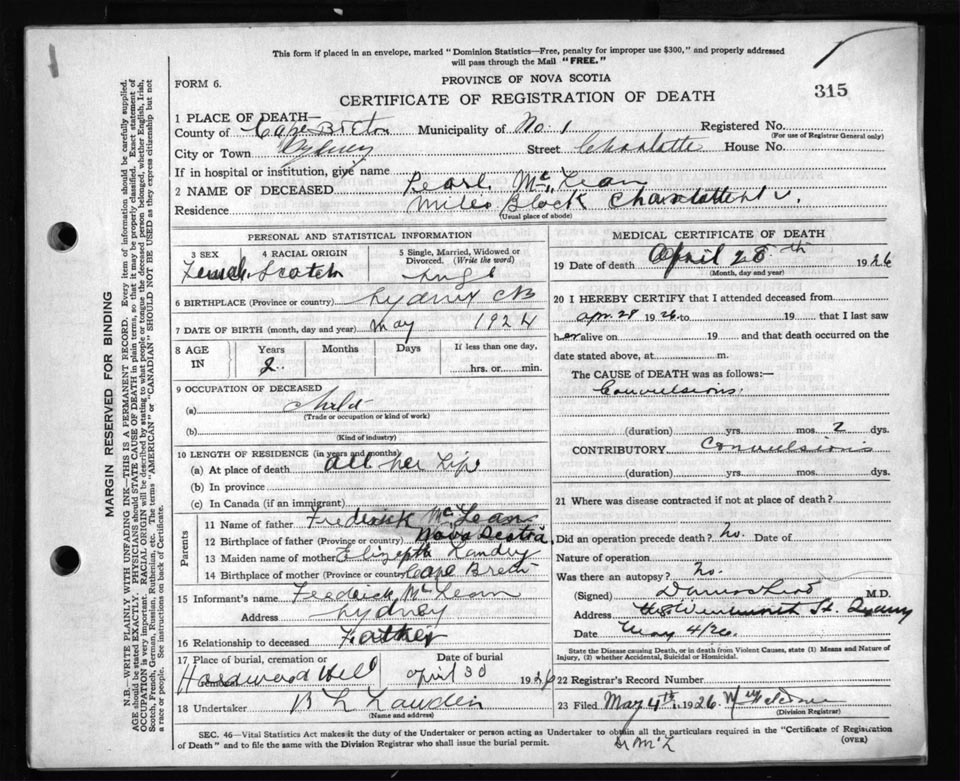 This form if placed in an envelope, marked "Dominion Statistics—Free, penalty for improper use $300," and properly addressed
will pass through the Mail "FREE."
FORM 6.
PROVINCE OF NOVA SCOTIA
315
CERTIFICATE OF REGISTRATION OF DEATH
1 PLACE OF DEATH—
County of Cape Breton Municipality of No. 1 Registered No.
(For use of Registrar General only)
City or Town Sydney Street Charlotte House No.
If in hospital or institution, give name
2 NAME OF DECEASED Pearl McLean
Residence Miles Block
(Usual place of abode)
PERSONAL AND STATISTICAL INFORMATION
3 SEX 4 RACIAL ORIGIN 5 Single, Married, Widowed or Divorced. (Write the word)
Female Scotch Single
6 BIRTHPLACE (Province or country) Sydney CB
7 DATE OF BIRTH (month, day and year) May 1924
8 AGE IN Years Months Days If less than one day,
2 hrs. or min.
9 OCCUPATION OF DECEASED
(a) Child
(Trade or occupation or kind of work)
(b)
(Kind of industry)
10 LENGTH OF RESIDENCE (in years and months)
(a) At place of death all her Life
(b) In province
(c) In Canada (if an immigrant)
Parents
11 Name of father Frederick McLean
12 Birthplace of father (Province or country) Nova Scotia
13 Maiden name of mother Landry
14 Birthplace of mother (Province or country) Cape Breton
15 Informant's name Frederick McLean
Address Sydney
16 Relationship to deceased Father
17 Place of burial, cremation or removal Date of burial
Hardwood Hill April 30 1926
18 Undertaker
(Name and address)
MEDICAL CERTIFICATE OF DEATH
19 Date of death April 28th 1926
(Month, day and year)
20 I HEREBY CERTIFY that I attended deceased from
Apr. 28 1926 to 19 that I last saw
her alive on 19 and that death occurred on the
date stated above, at m.
The CAUSE of DEATH was as follows:—
Convulsions.
(duration) yrs. mos. 2 dys.
CONTRIBUTORY Convulsions
(duration) yrs. mos. dys.
21 Where was disease contracted if not at place of death?
Did an operation precede death? No. Date of
Nature of operation
Was there an autopsy? No.
(Signed) M.D.
Address Wentworth St. Sydney
Date May 4/26.
State the Disease causing Death, or in death from Violent Causes, state (1) Means and Nature of
Injury, (2) whether Accidental, Suicidal or Homicidal.
22 Registrar's Record Number
23 Filed May 4th, 1926.
(Division Registrar)
SEC. 46—Vital Statistics Act makes it the duty of the Undertaker or person acting as Undertaker to obtain all the particulars required in the "Certificate of Registration
of Death" and to file the same with the Division Registrar who shall issue the burial permit.
(OVER)
MARGIN RESERVED FOR BINDING
N.B.—WRITE PLAINLY WITH UNFADING INK—THIS IS A PERMANENT RECORD. Every item of information should be carefully supplied.
AGE should be stated EXACTLY. PHYSICIANS should STATE CAUSE OF DEATH in plain terms, so that it may be properly classified. Exact statement of
OCCUPATION is very important. RACIAL ORIGIN will be described by stating to what people or tongue the deceased person belonged, whether English, Irish,
Scotch, French, German, Russian, Ruthenian, etc. The terms "AMERICAN" or "CANADIAN" SHOULD NOT BE USED as they express citizenship but not
a race or people. See instructions on back of Certificate.